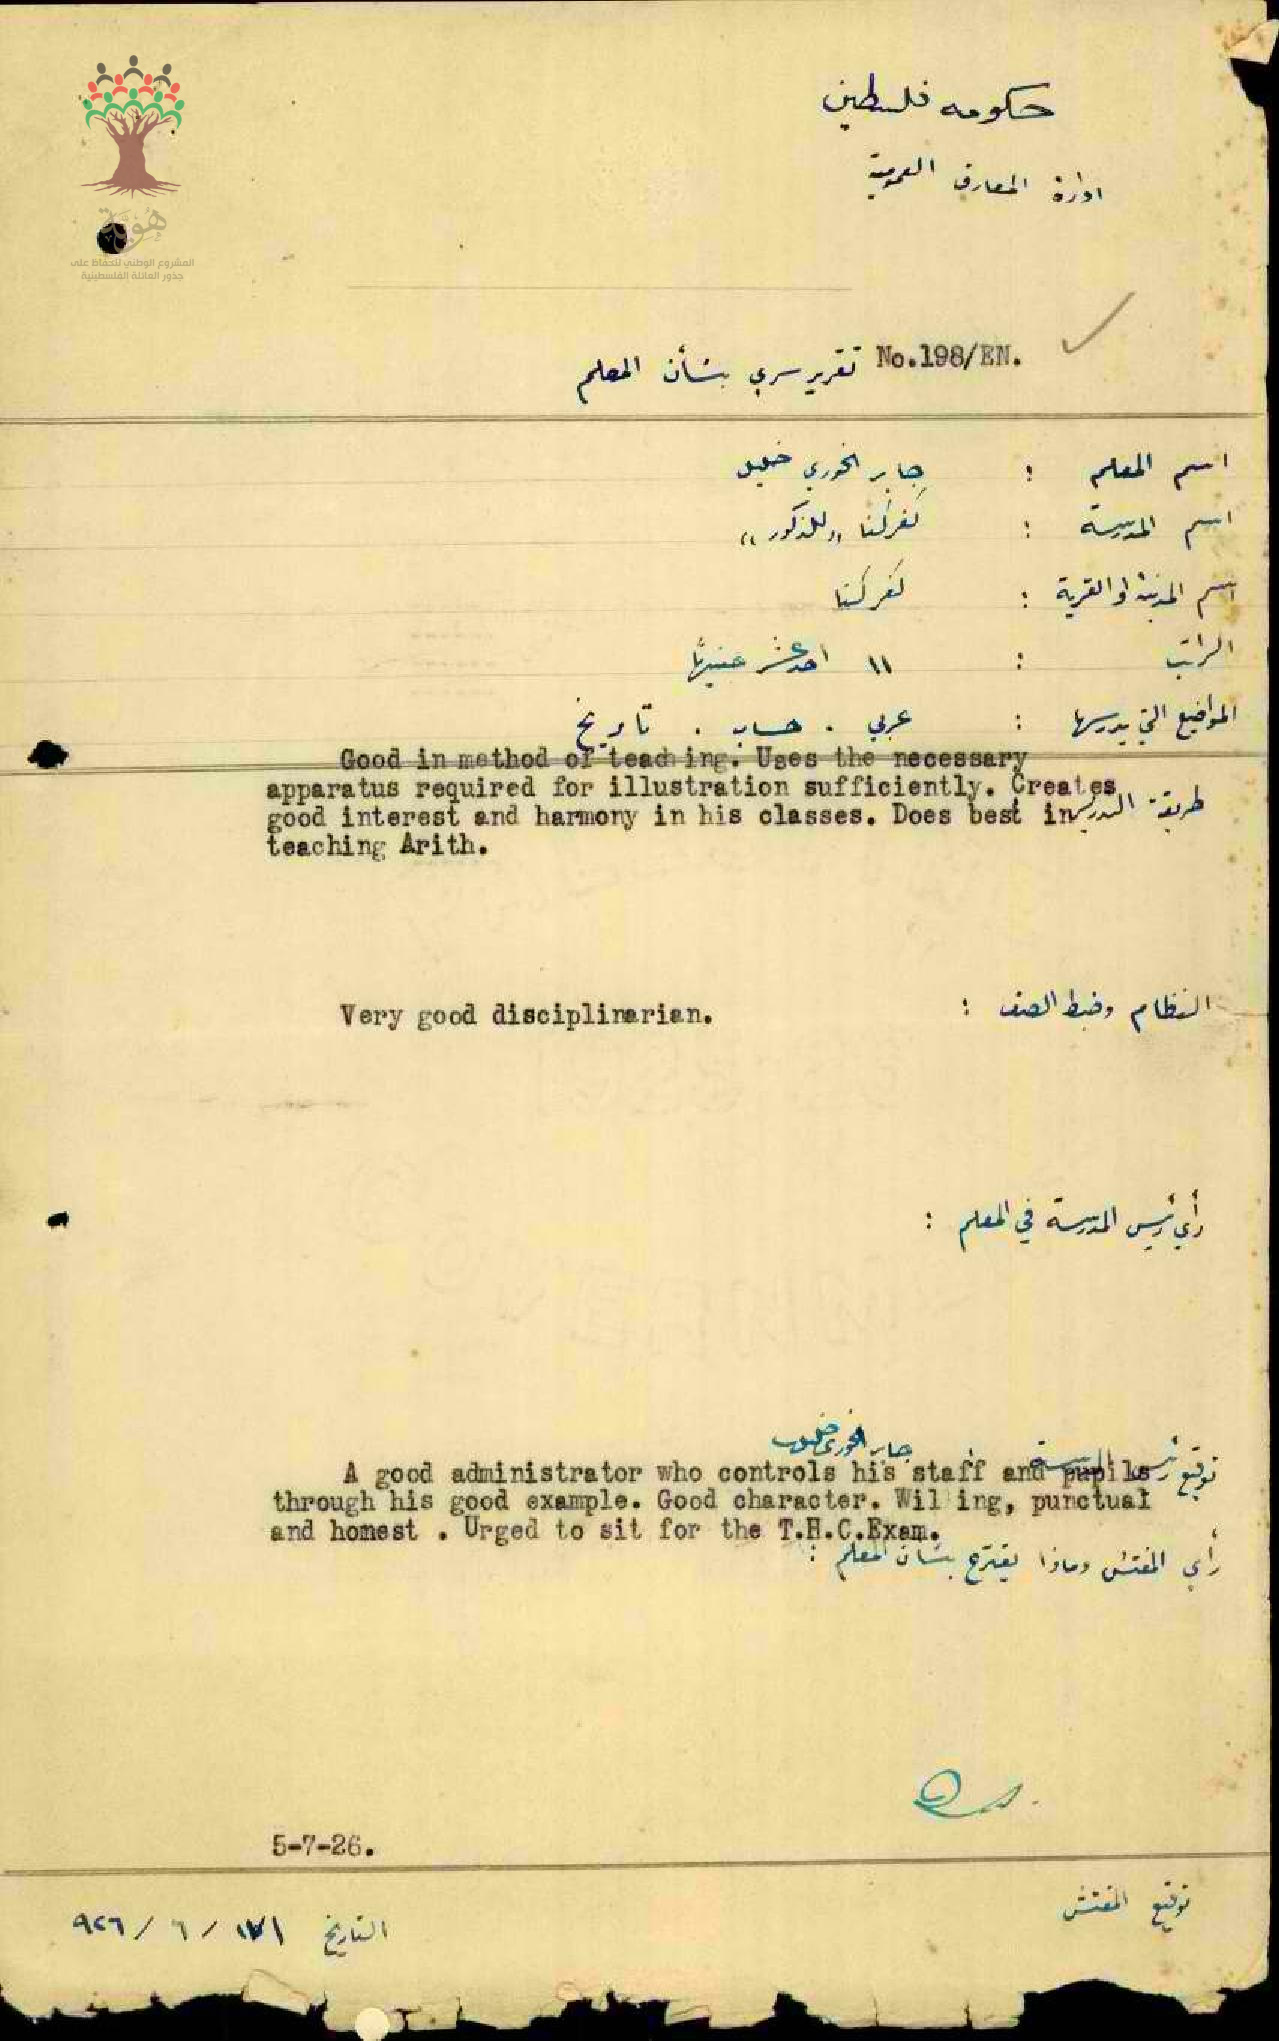 هوية
المشروع الوطني للحفاظ على
جذور العائلة الفلسطينية
حكومه فلسطين
ادارة المعارف العمومية
No.198/EN.
تقرير سري بشأن المعلم
اسم المعلم : جابر الخوري خليل
اسم المدرسة : كفركنا "للذكور"
اسم المدينة او القرية : كفركنا
الراتب : ١١ احد عشر جنيهًا
المواضيع التي يدرسها : عربي . حساب . تاريخ
Good in method of teaching. Uses the necessary
apparatus required for illustration sufficiently. Creates
good interest and harmony in his classes. Does best in
teaching Arith.
طريقة التدريس
النظام وضبط الصف :
Very good disciplinarian.
رأي رئيس المدرسة في المعلم :
توقيع رئيس المدرسة جابر الخوري خليل
A good administrator who controls his staff and pupils
through his good example. Good character. Willing, punctual
and honest . Urged to sit for the T.H.C.Exam.
رأي المفتش وماذا يقترح بشأن المعلم :
5-7-26.
توقيع المفتش
التاريخ / ٦ / ٩٢٦